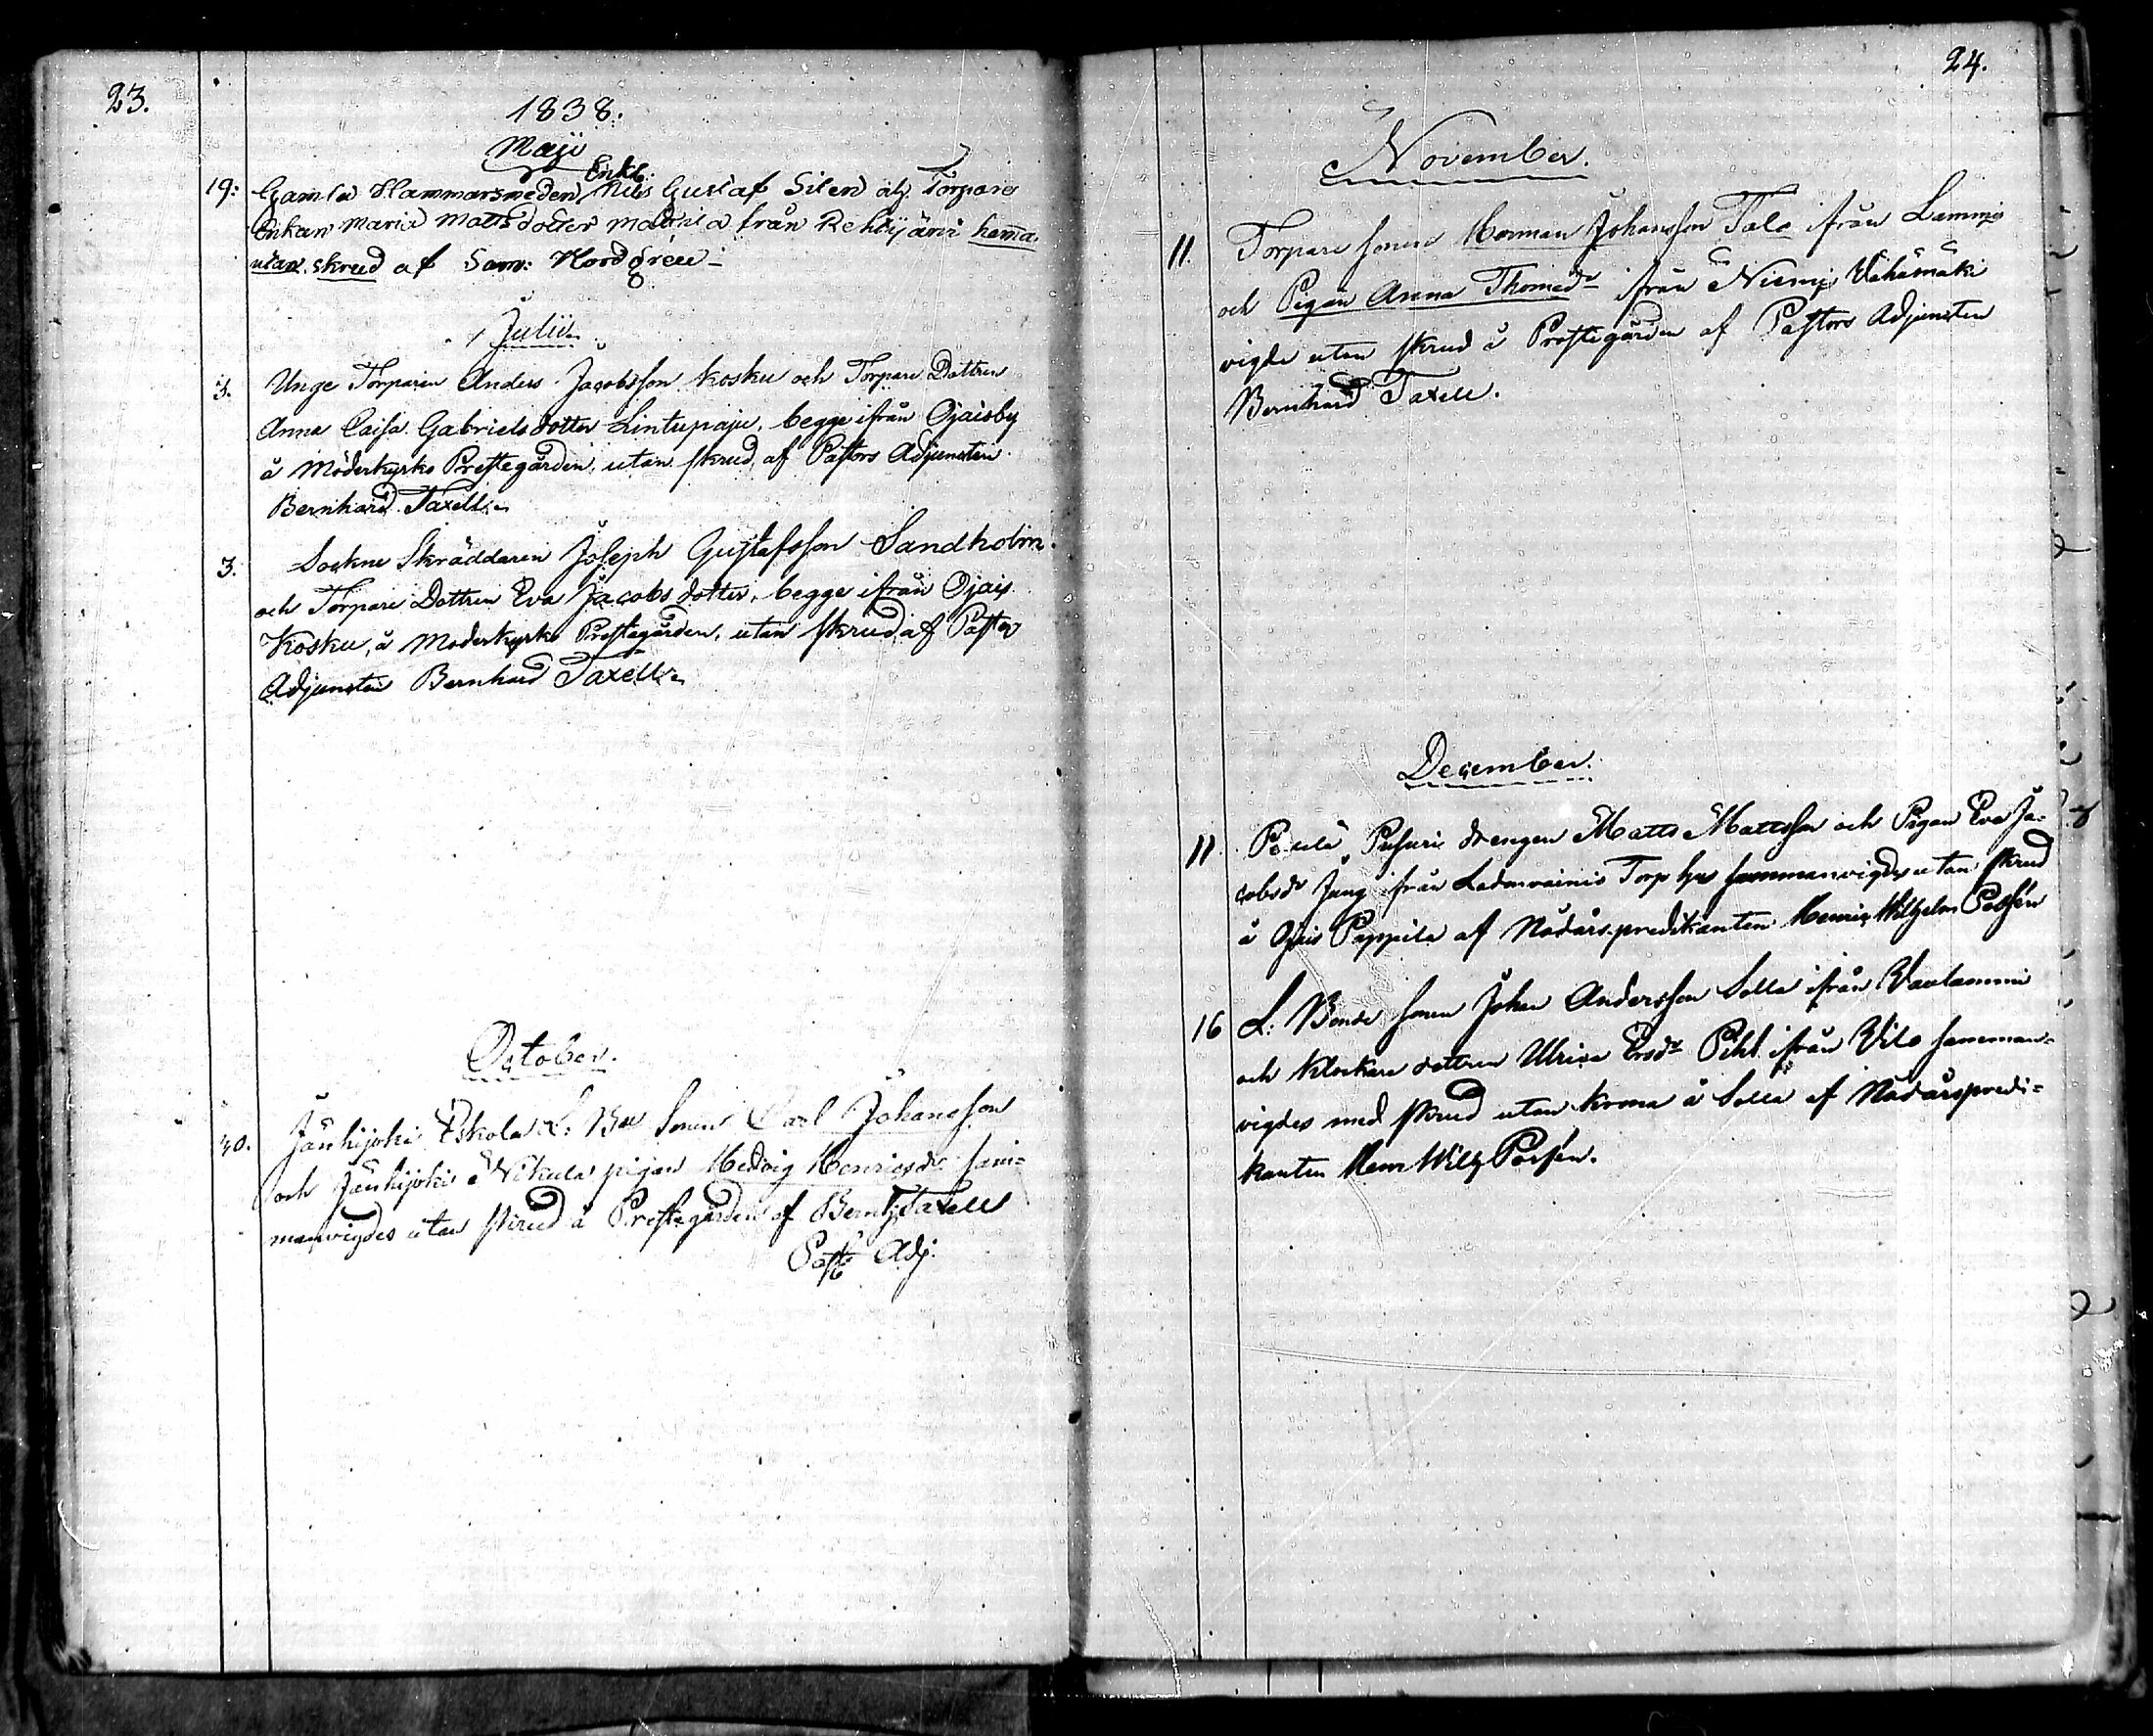 23.
1838.
Maji
Enkl:
19: Gamla Hammarsmeden Nils Gustaf Silen och Torpare
Enkan Maria Mattsdotter Mattila från Rehtijärvi hema.
utan skrud af Sam: Nordgrén
Julii
3. Unge Torparen Anders Jacobsson Kosku och Torpare Dottren
Anna Caisa Gabrielsdotter Lintupaju, begge ifrån Ojaisby
å Moderkyrko Prestegården, utan skrud, af Pastors Adjuncten
Bernhard Taxell.
3. Sockne Skräddaren Joseph Gustafsson Sandholm
och Torpare Dottren Eva Jacobsdotter, begge ifrån Ojais
Kosku, å Moderkyrko Prestegården, utan skrud af Pastors
Adjuncten Bernhard Taxell.
October.
30. Jänhijoki Eskola L: Bde Sonen Carl Johansson
och Jänhijoki Nikula pigan Hedvig Henricsdr sam-
manvigdes utan skrud å Prestegården af Bernh Taxell
Past Adj.
24.
November.
11. Torpare sonen Herman Johansson Talo ifrån Lammi
och Pigan Anna Thomedr ifrån Niemi Vähämäki
vigde utan skrud å Prestegården af Pastors Adjuncten
Bernhard Taxell.
December.
11 Peula Pusuri drengen Matts Mattsson och Pigan Eva Ja-
cobsdr Jung ifrån Ladonvainio Torp sammanvigdes utan skrud
å Ojais Pappila af Nådårspredikanten Henric Wilhelm Polsén
16 L: Bonde sonen Johan Andersson Solla ifrån Vaulammi
och Klockare dottren Ulrica Ersdr Pihl ifrån Vilo samman-
vigdes med skrud utan krona å Solla af Nådårspredi-
kanten Henr Wilh Polsén.